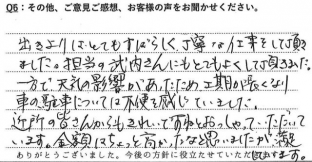 Q5：その他、ご意見ご感想、お客様の声をお聞かせください。
出来よりはとてもすばらしく、丁寧な仕事をして頂き
ました。担当の武内さんにもとてもよくして頂きました。
一方で天気の影響があったため、工期が長くなり
車の駐車については不便も感じていました。
近所の皆さんからもきれいですねとおっしゃっていただいて
います。金額はちょっと高かったなと思いましたが、満
ありがとうございました。今後の方針に役立たせていただきます。